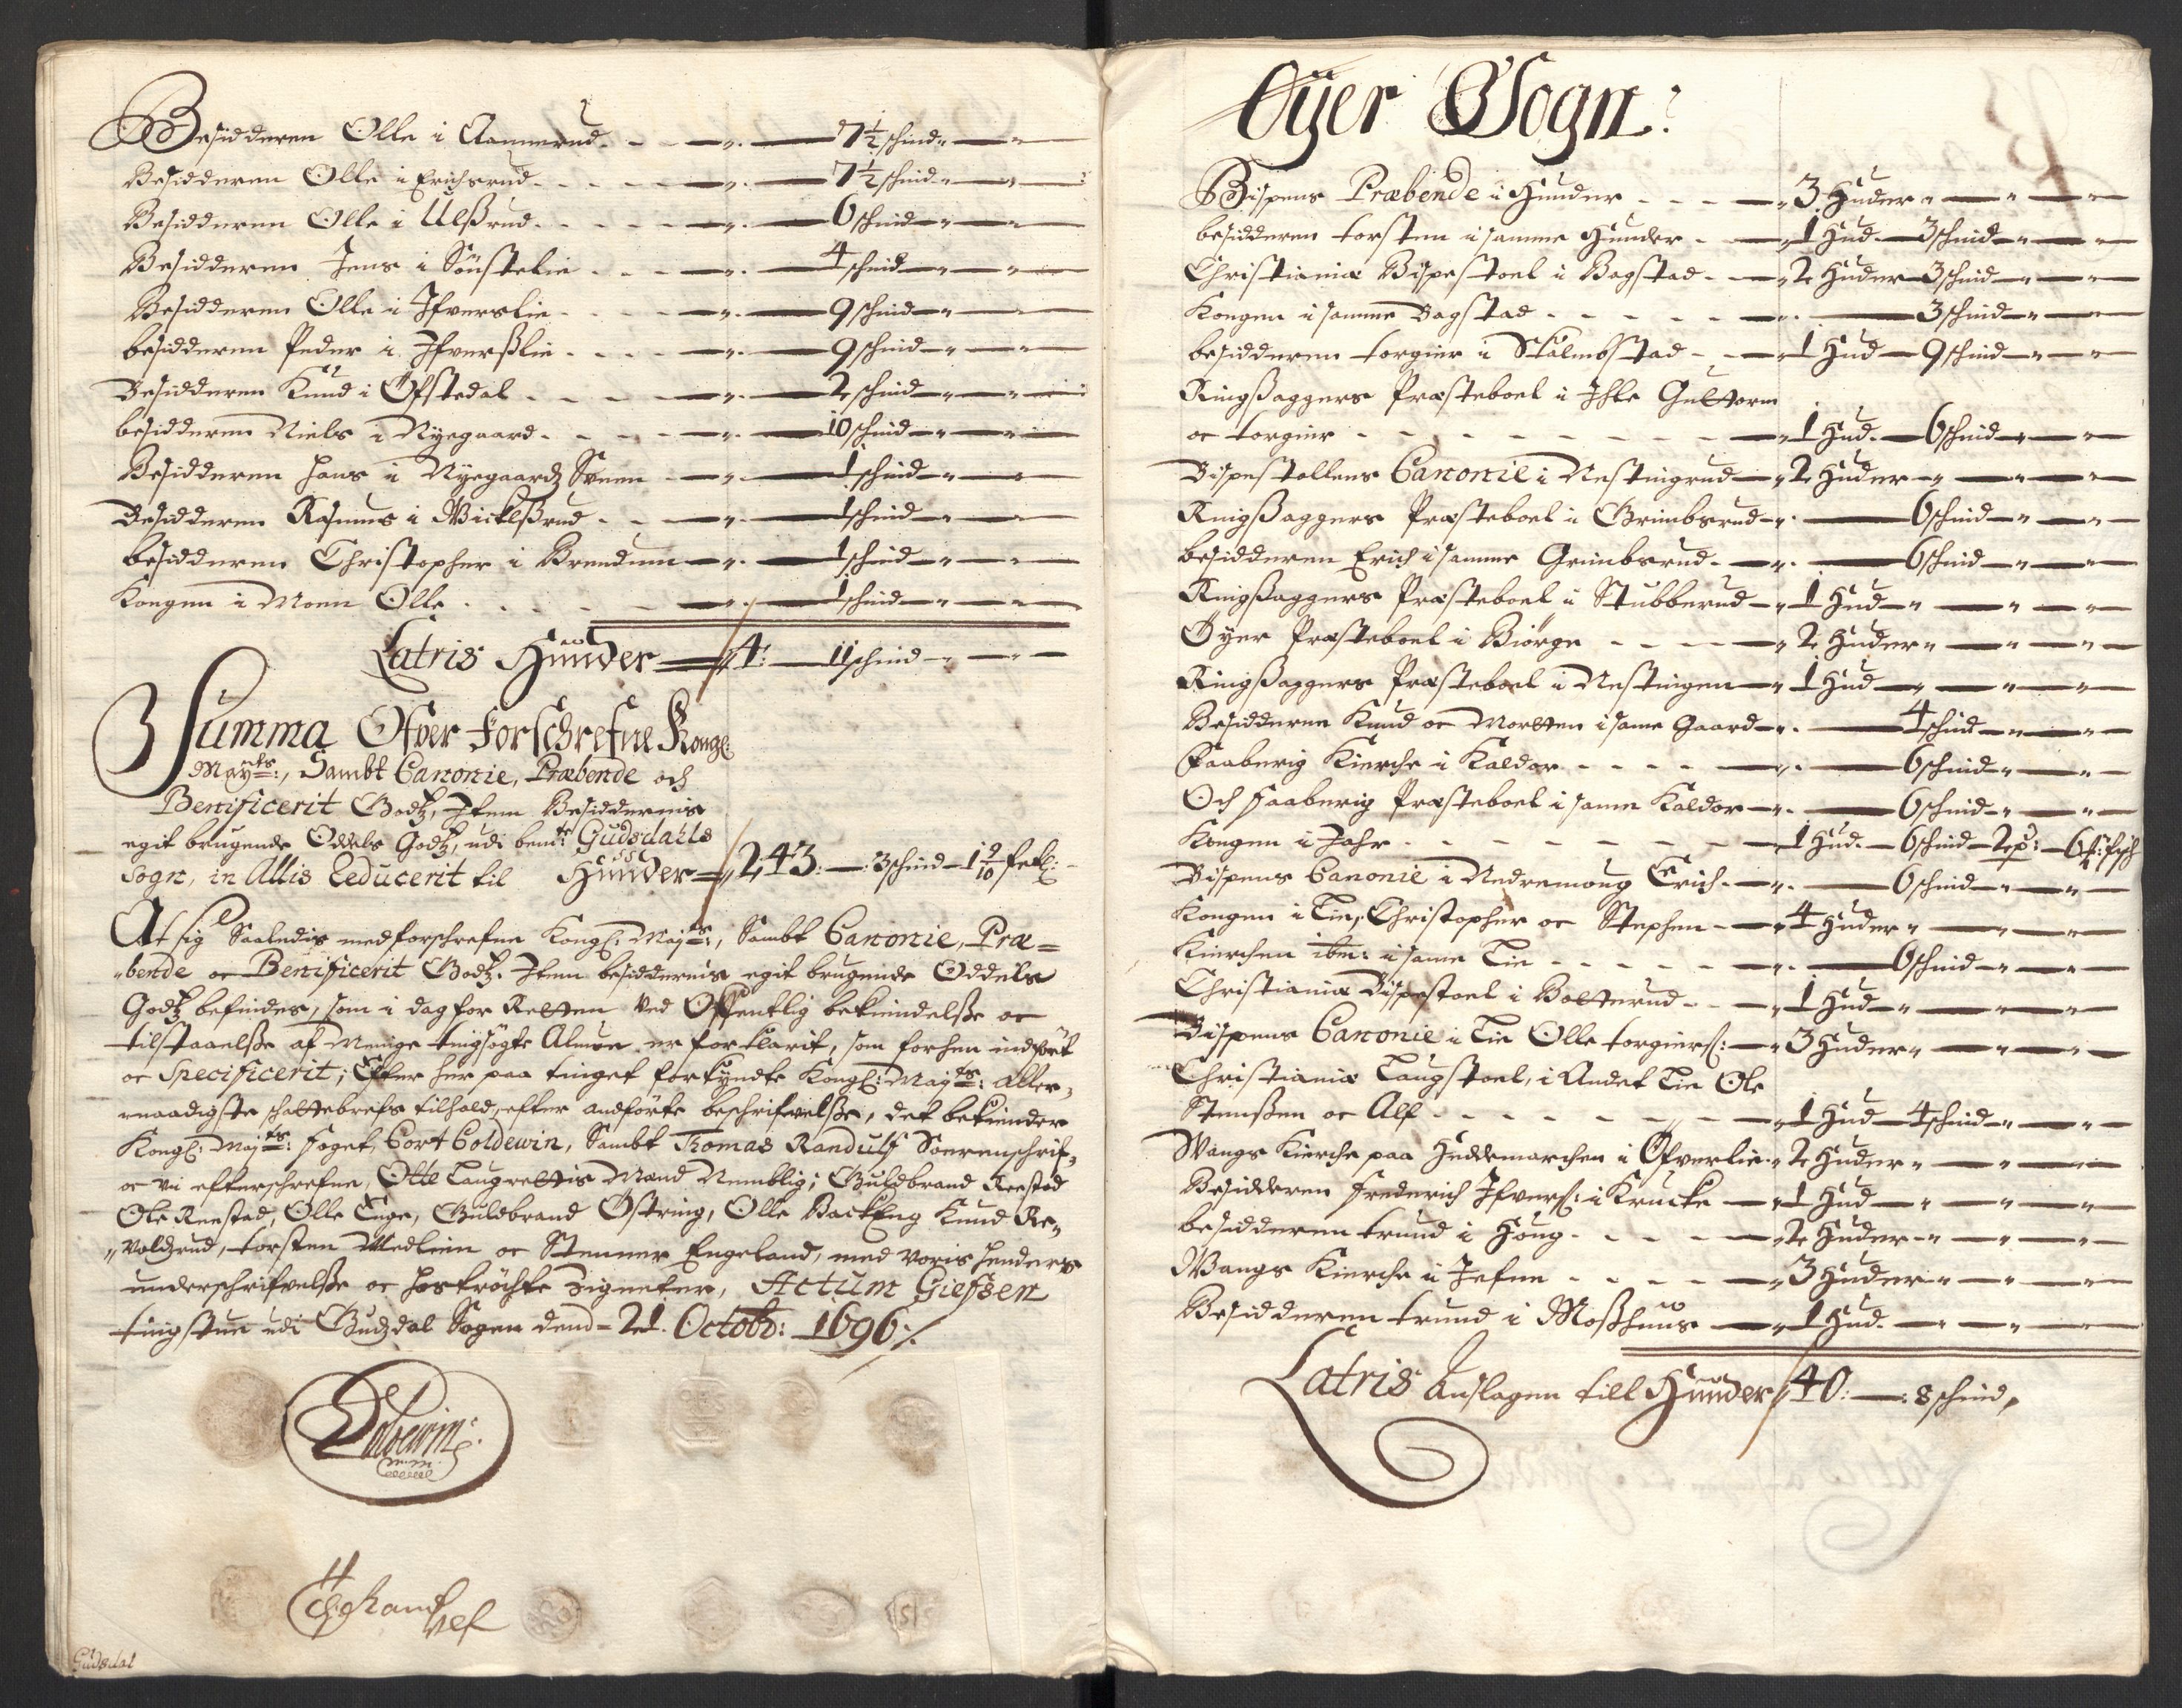 Besidderen Olle i Aannerud - - - „ - 7½ schind „ - „
Besidderen Olle i Erichsrud - - - „ - 7½ schind „ - „
Besidderen Olle i Ulßrud - - - „ - 6 schind „ - „
Besidderen Jens i Sönstelie - - - „ - 4 schind „ - „
Besidderen Olle i Ifverslie - - - „ - 9 schind „ - „
besidderen Peder i Ifverßlie - - - „ - 9 schind „ - „
Besidderen Knud i Öfstedal - - - „ - 2 schind „ - „
besidderen Niels i Nyegaard - - - „ - 10 schind „ - „
Besidderen Hans i Nyegaardz Sveen - „ - 1 schind „ - „
Besidderen Rasmus i Wicklßrud - - „ - 1 schind „ - „
besidderen Christopher i Brendum - „ - 1 schind „ - „
Kongen i Moen Olle - - - „ - 1 schind „ - „
Latris Huuder - „ 4: - 11 schind - „ - „
Summa Ofver forschrefne Kongl:
Mayts:, Sambt Canonie, Præbende och
Benificerit Godtz, Item Besiddernis
egit brugende Oddels Godtz, udi bemte Gudsdahls
Sogn, in Allis Reducerit til Huuder - „ 243: - 3 schind - 1 9/10 fetl:
At sig Saaledis med forschrefne Kongl: Mayts:, Sambt Canonie, Præ=
„bende oc Benificerit Godtz. Item besiddernis egit brugende Oddels
Godtz befindes, som i dag for Retten ved Offentlig bekiendelße oc
tilstaaelße af Menige tingsögte Almue er forklarit, som forhen indfört
oc Specificerit; Efter her paa tinget forkyndte Kongl: Mayts: Aller-
naadigste schattebrefs tilhold, efter andförte beschrifvelße, det bekiender
Kongl: Mayts: foget, Cort Coldewin, Sambt Thomas Randulf Soerenschrif,
oc vi efterschrefne, Otte Laugrettis Mænd Nemblig; Guldbrand Reestad
Ole Reestad, Olle Enge, Guldbrand Östring, Olle Backeng Knud Re„
„voldzrud, torsten Medlien oc Stenner Engeland, med voris henders
underschrifvelße oc hoströchte Zigneter, Actum Gießen
tingstue udi Gudzdal Sogen dend 21. Octobr: 1696 ⁒
Coldewin:
mm.
Gudsdal
Öyer Sogn:
Bispens Præbende i Hunder - - - „ 3 Huder „ - „ - „
besidderen torsten i samme Hunder - „ 1 Hud - 3 schind „ - „
Christiania Bispestoel i Bagstad - - „ 2 Huder 3 schind „ - „
Kongen i samme Bagstad - - - „ - 3 schind „ - „
besidderen torgier i Skalmbstad - - „ 1 Hud - 9 schind „ - „
Ringßaggers Præsteboel i Ihle Guttorm
oc torgier - - - - „ 1 Hud - 6 schind „ - „
Bispestollens Canonie i Nestingrud - „ 2 Huder „ - „ - „
Ringßaggers Præsteboel i Grimbsrud - „ - 6 schind „ - „
besidderen Erich i samme Grimbsrud - „ - 6 schind „ - „
Ringßaggers Præsteboel i Stubberud - „ 1 Hud - „ - „ - „
Öyer Præsteboel i Biörge - - - „ 2 Huder „ - „ - „
Ringßaggers Præsteboel i Nestingen - „ 1 Hud - „ - „ - „
Besidderne Knud oc Morten i same Gaard - „ - 4 schind „ - „
Faaberig Kierche i Kaldor - - - „ - 6 schind „ - „
Och Faaberig Præsteboel i same Kaldor - „ - 6 schind „ - „
Kongen i Jahr - - - - 1 Hud - 6 schind -
Bispens Canonie i Nedremoug Erich - „ - 6 schind „ - „
Kongen i Lie, Christopher oc Stephen - „ 4 Huder „ - „ - „
Kierchen ibm: i same Lie - - - „ - 6 schind „ - „
Christiania Bispestoel i Botterud - - „ 1 Hud - „ - „ - „
Bispens Canonie i Lie Olle torgiers: - „ 3 Huder „ - „ - „
Christiania Laugstoel, i Andet Lie Ole
Stenßen oc Alf - - - - „ 1 Hud - 4 schind „ - „
Wangs Kierche paa Heddemarchen i Öfverlie „ 2 Huder „ - „ - „
Besidderen Frederich Ifvers: i Krucke - „ 1 Hud - „ - „ - „
besidderen trund i Houg - - - „ 2 Huder „ - „ - „
Wangs Kierche i Jefne - - - „ 3 Huder „ - „ - „
Besidderen trund i Moßhuus - „ 1 Hud - „ - „
Latris Anslagen till Huuder „ 40: - 8 schind,